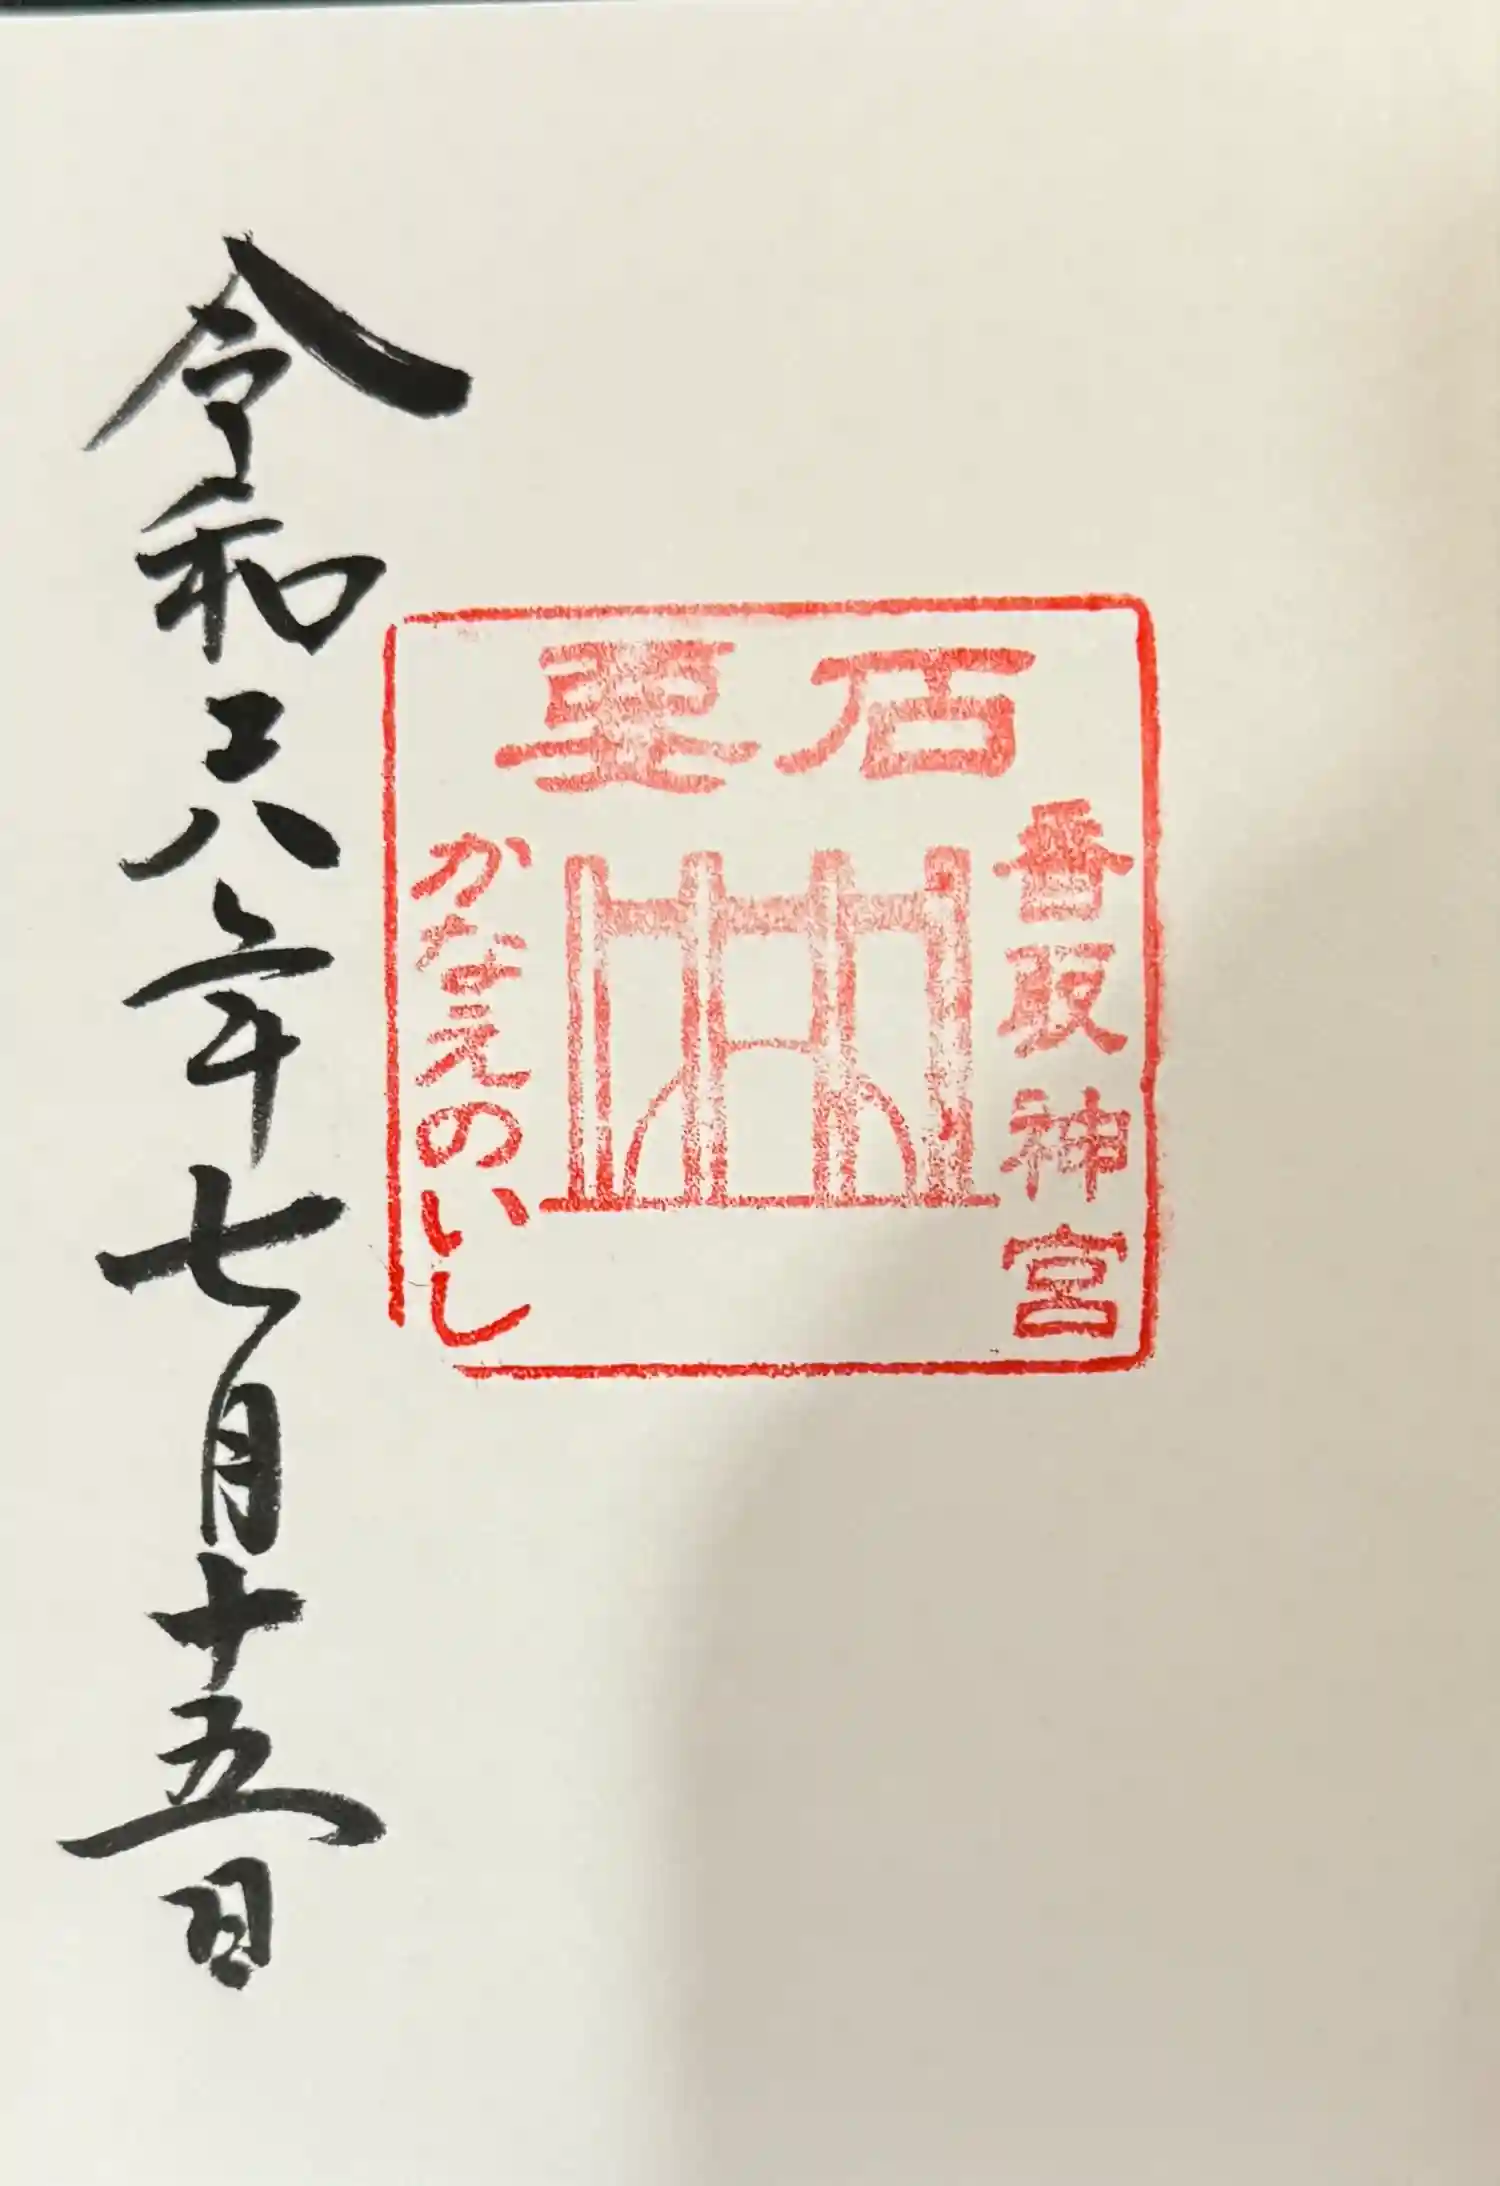 要石
香取神宮
かなえのいし
令和六年七月十五日